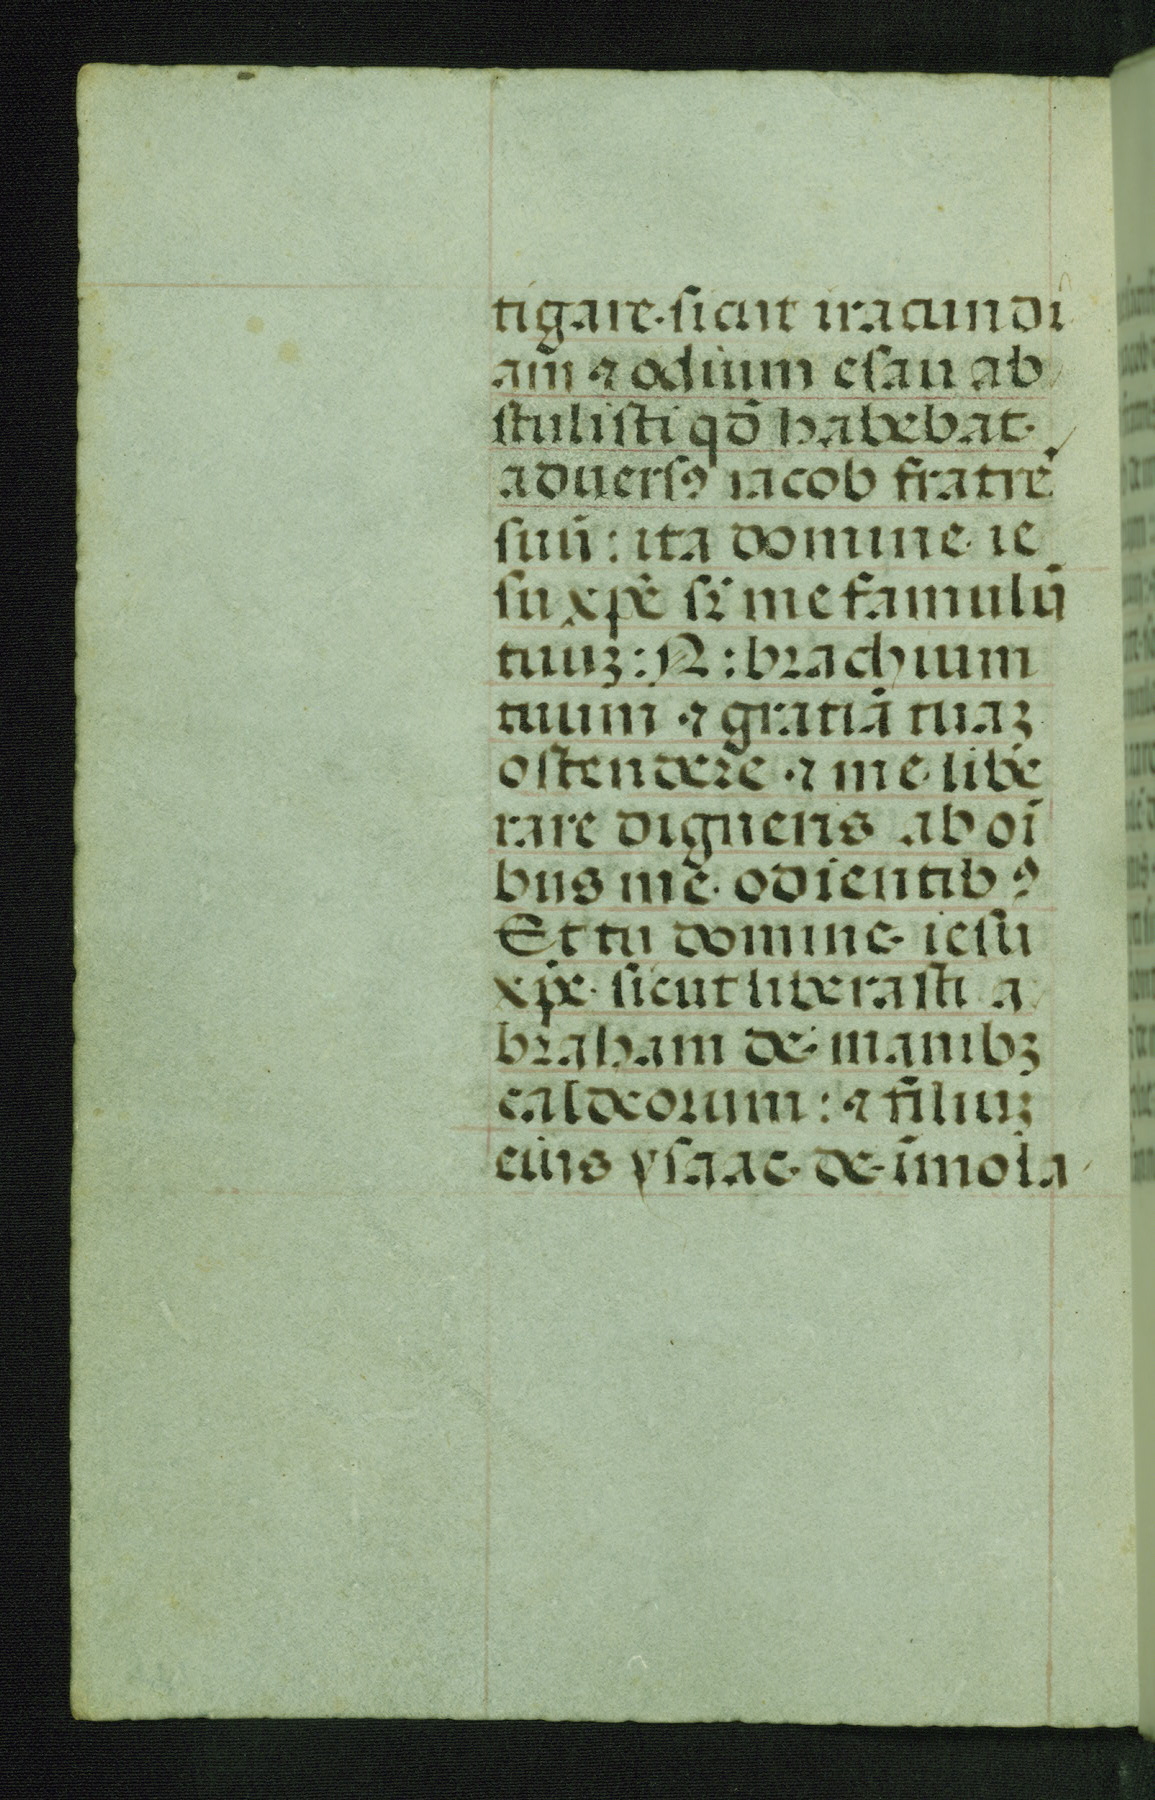 tigare. sicut iracundi
am̄ ⁊ odium esau ab
stulisti qd̄ habebat
aduersꝰ iacob fratrē
suū: ita domine ie
su xp̄e sr̄ me famulū
tuuꝫ: N: brachium
tuum ⁊ gratiā tuaꝫ
ostendere ⁊ me libe
rare digneris ab oī
bus me. odientibꝰ
Et tu domine iesu
xp̄e sicut liberasti a
braham de manibꝫ
caldeorum: ⁊ filiuꝫ
eius ysaac de īmola